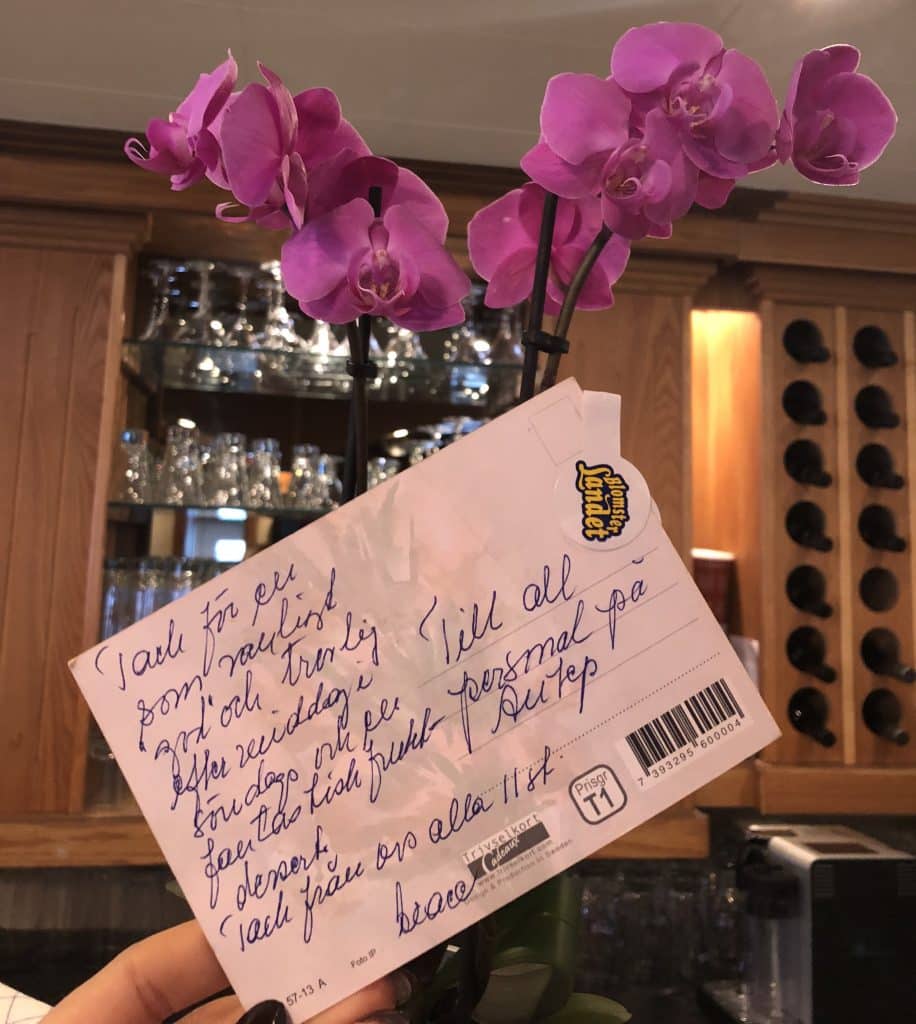 Tack för en
som vanligt
"god" och trevlig
eftermiddag i
söndags om en
fantastisk frukt-
dessert.
Tack från oss alla 11 st.
Till all
personal på
Blomster
Landet
7 393295 600004
Prisgr
T1
Trivselkort
Cadeaux
www.trivselkort.com
Design & Production in Sweden
Foto IP
57-13 A